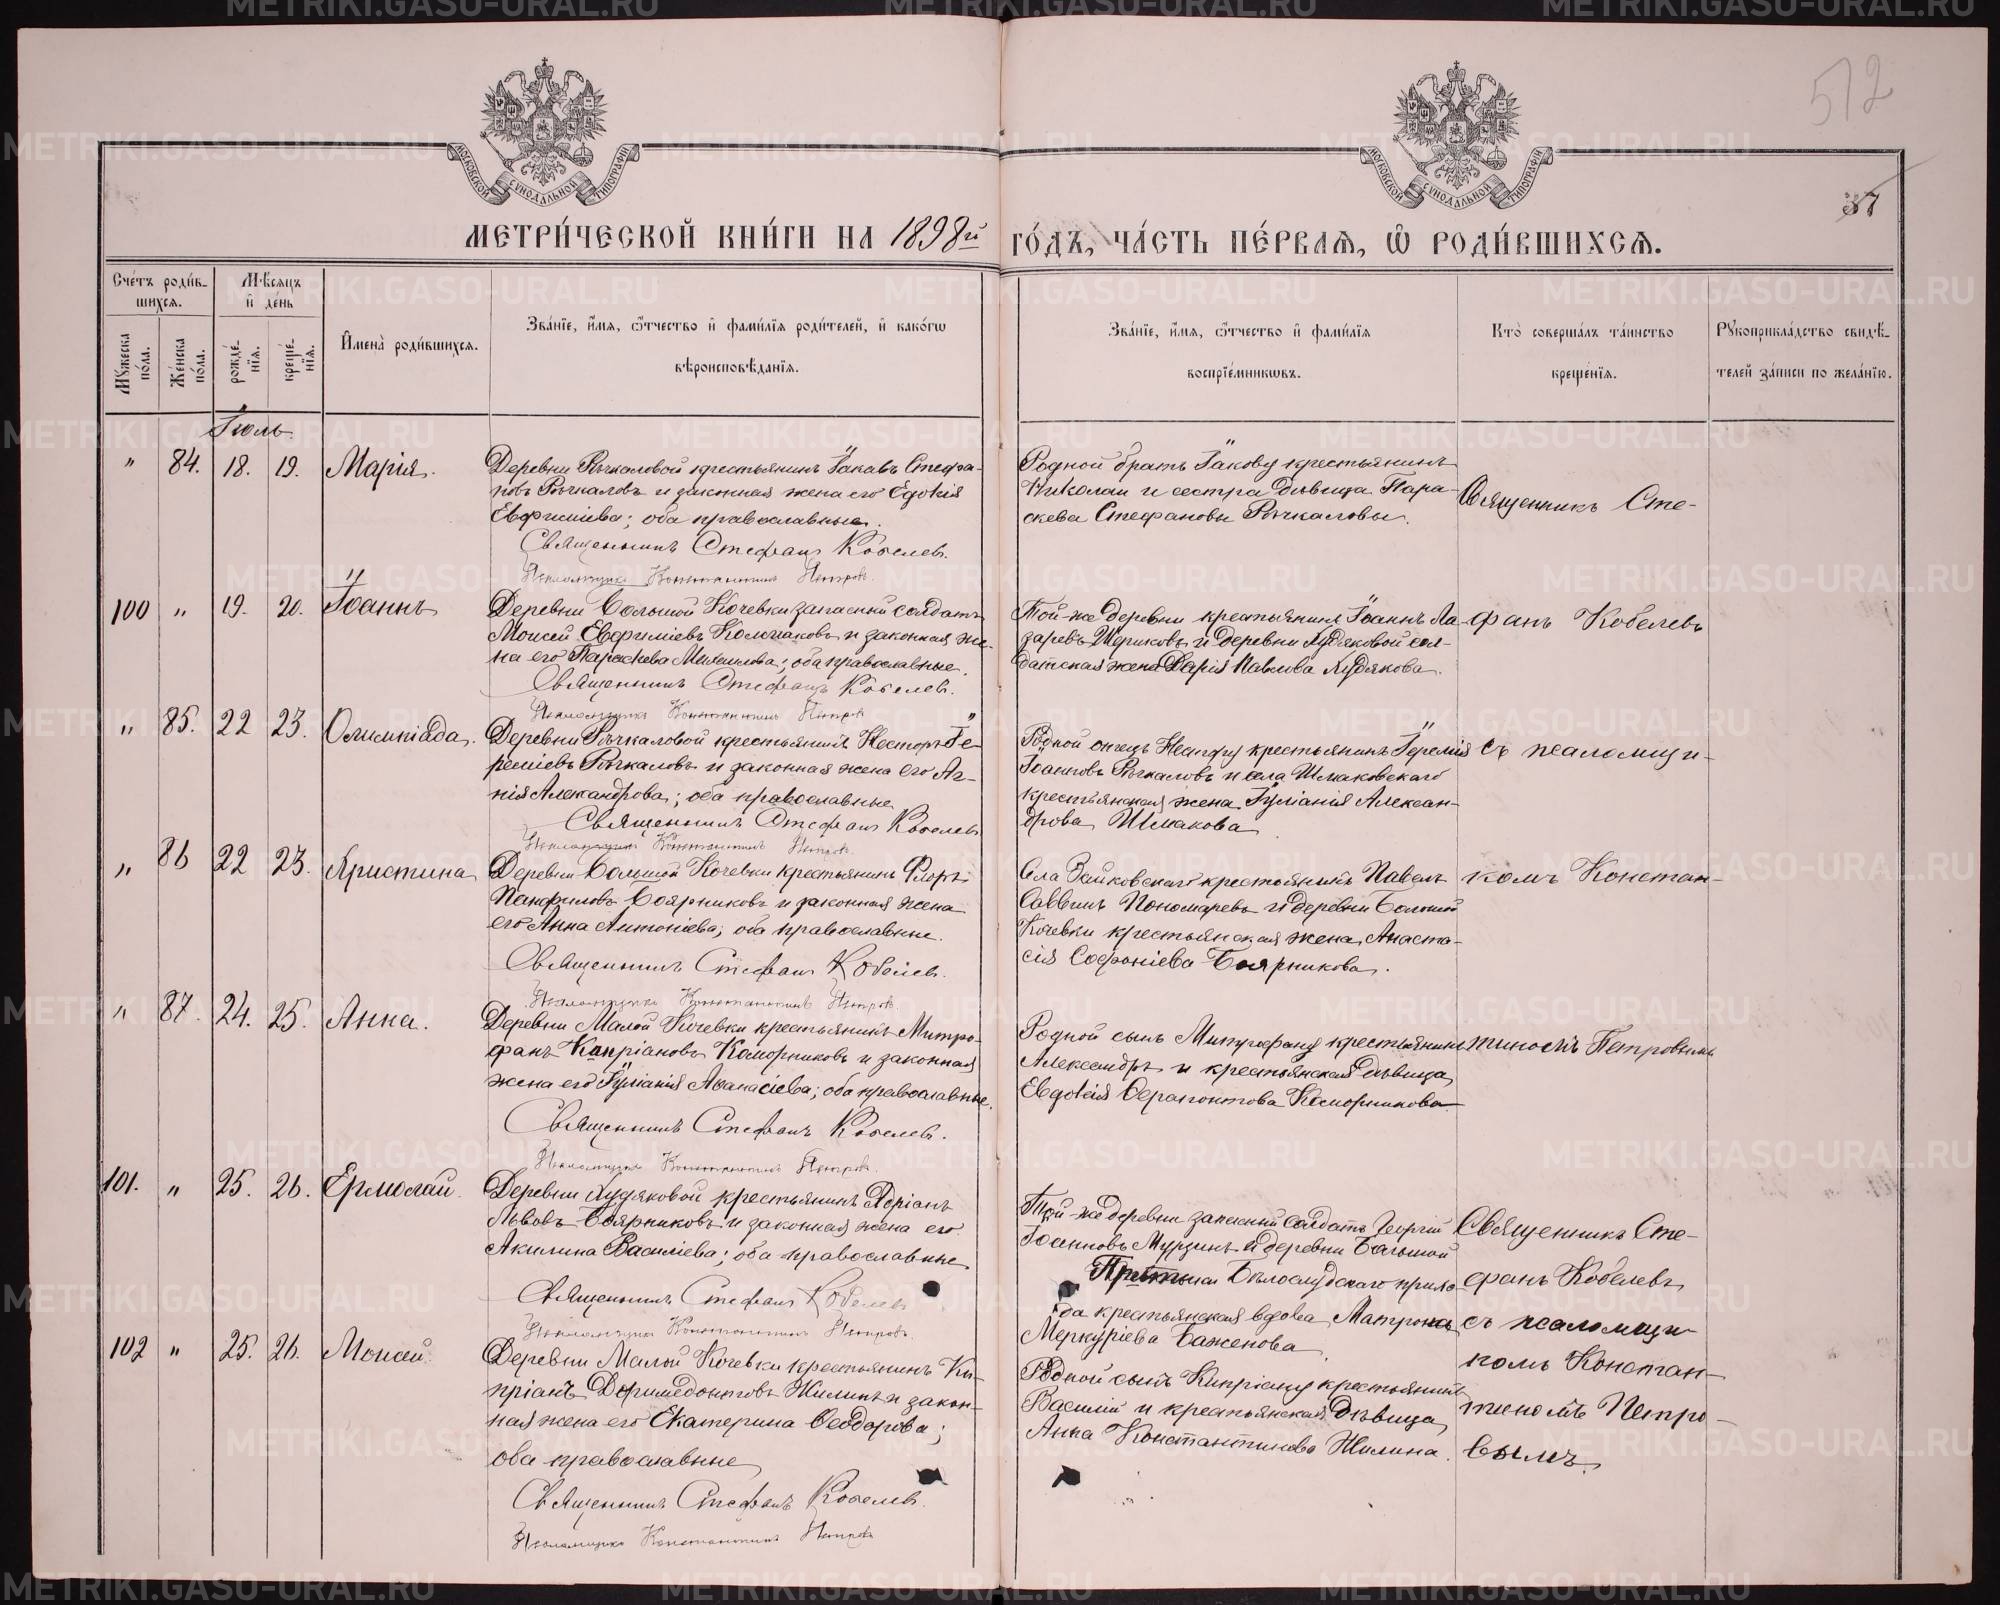 512
37
МОСКОВСКОЙ СѴНОДАЛЬНОЙ ТИПОГРАФІИ
МОСКОВСКОЙ СѴНОДАЛЬНОЙ ТИПОГРАФІИ
МЕТРИ́ЧЕСКОЙ КНИ́ГИ НА 1898й ГО́ДЪ, ЧА́СТЬ ПЕ́РВАѦ, Ѡ҆ РОДИ́ВШИХСѦ.
Сче́тъ роди́в-
шихсѧ.
Мѣ́сѧцъ
и҆ де́нь
Мꙋ́жеска по́ла.
Же́нска по́ла.
рожде́-
нїѧ.
креще́-
нїѧ.
И҆мена̀ роди́вшихсѧ.
Зва́нїе, и҆́мѧ, ѻ҆́тчество и҆ фами́лїѧ роди́телей, и҆ како́гѡ
вѣроисповѣ́данїѧ.
Зва́нїе, и҆́мѧ, ѻ҆́тчество и҆ фами́лїѧ
воспрїе́мникѡвъ.
Кто̀ соверша́лъ та́инство
креще́нїѧ.
Рꙋкоприкла́дство свидѣ́-
телей за́писи по жела́нїю.
Іюль.
" 84. 18. 19. Марія.
Деревни Рычкаловой крестьянинъ Іаковъ Стефа-
новъ Рычкаловъ и законная жена его Евдокія
Евфиміева; оба православные.
Священникъ Стефанъ Кобелев.
Псаломщикъ Константинъ Петровъ.
Родной братъ Іакову крестьянинъ
Николай и сестра дѣвица Пара-
скева Стефановы Рычкаловы.
Священникъ Сте-
100 " 19. 20. Іоаннъ
Деревни Большой Кочевки запасный солдатъ
Моисей Евфиміевъ Колмаковъ и законная же-
на его Параскева Михаилова; оба православные.
Священникъ Стефанъ Кобелев.
Псаломщикъ Константинъ Петровъ
Той-же деревни крестьянинъ Іоаннъ Ла-
заревъ и деревни Худяковой сол-
датская жена Дарія Павлова Худякова.
фанъ Кобелевъ
" 85. 22 23. Олимпіада.
Деревни Рычкаловой крестьянинъ Несторъ Іе-
реміевъ Рычкаловъ и законная жена его Аг-
нія Александрова; оба православные
Священникъ Стефанъ Кобелев
Псаломщикъ Константинъ Петровъ.
Родной отецъ Нестору крестьянинъ Іеремія
Іоанновъ Рычкаловъ и села Шмаковскаго
крестьянская жена Іуліанія Алексан-
дрова Шмакова
съ псаломщи-
" 86 22 23. Христина
Деревни Большой Кочевки крестьянинъ Флоръ
Панфиловъ Боярниковъ и законная жена
его Анна Антоніева; оба православные.
Священникъ Стефанъ Кобелев.
Псаломщикъ Константинъ Петровъ
Села Зайковскаго крестьянинъ Павелъ
Саввинъ Пономаревъ и деревни Большой
Кочевки крестьянская жена Анаста-
сія Софоніева Боярникова.
комъ Констан-
" 87. 24. 25. Анна.
Деревни Малой Кочевки крестьянинъ Митро-
фанъ Кипріановъ Коморниковъ и законная
жена его Іуліанія Аѳанасіева; оба православные.
Священникъ Стефанъ Кобелев.
Псаломщикъ Константинъ Петровъ.
Родной сынъ Митрофану крестьянинъ
Александръ и крестьянская дѣвица
Евдокія Ферапонтова Коморникова
тиномъ Петровымъ
101. " 25. 26. Ермолай.
Деревни Худяковой крестьянинъ Адріанъ
Львовъ Боярниковъ и законная жена его
Акилина Василіева; оба православные
Священникъ Стефанъ Кобелев
Псаломщикъ Константинъ Петровъ.
Той-же деревни запасный солдатъ Георгій
Іоанновъ Мурзинъ и деревни Большой
Бѣлослудскаго прихо-
да крестьянская вдова Матрона
Меркуріева Баженова.
Священникъ Сте-
фанъ Кобелевъ
съ псаломщи-
102 " 25. 26. Моисей.
Деревни Малой Кочевки крестьянинъ Ки-
пріанъ Доримедонтовъ Жилинъ и закон-
ная жена его Екатерина Ѳеодорова;
оба православные
Священникъ Стефанъ Кобелев.
Псаломщикъ Константинъ Петровъ
Родной сынъ Кипріану крестьянинъ
Василій и крестьянская дѣвица
Анна Константинова Жилина.
комъ Констан-
тиномъ Петро-
вымъ.